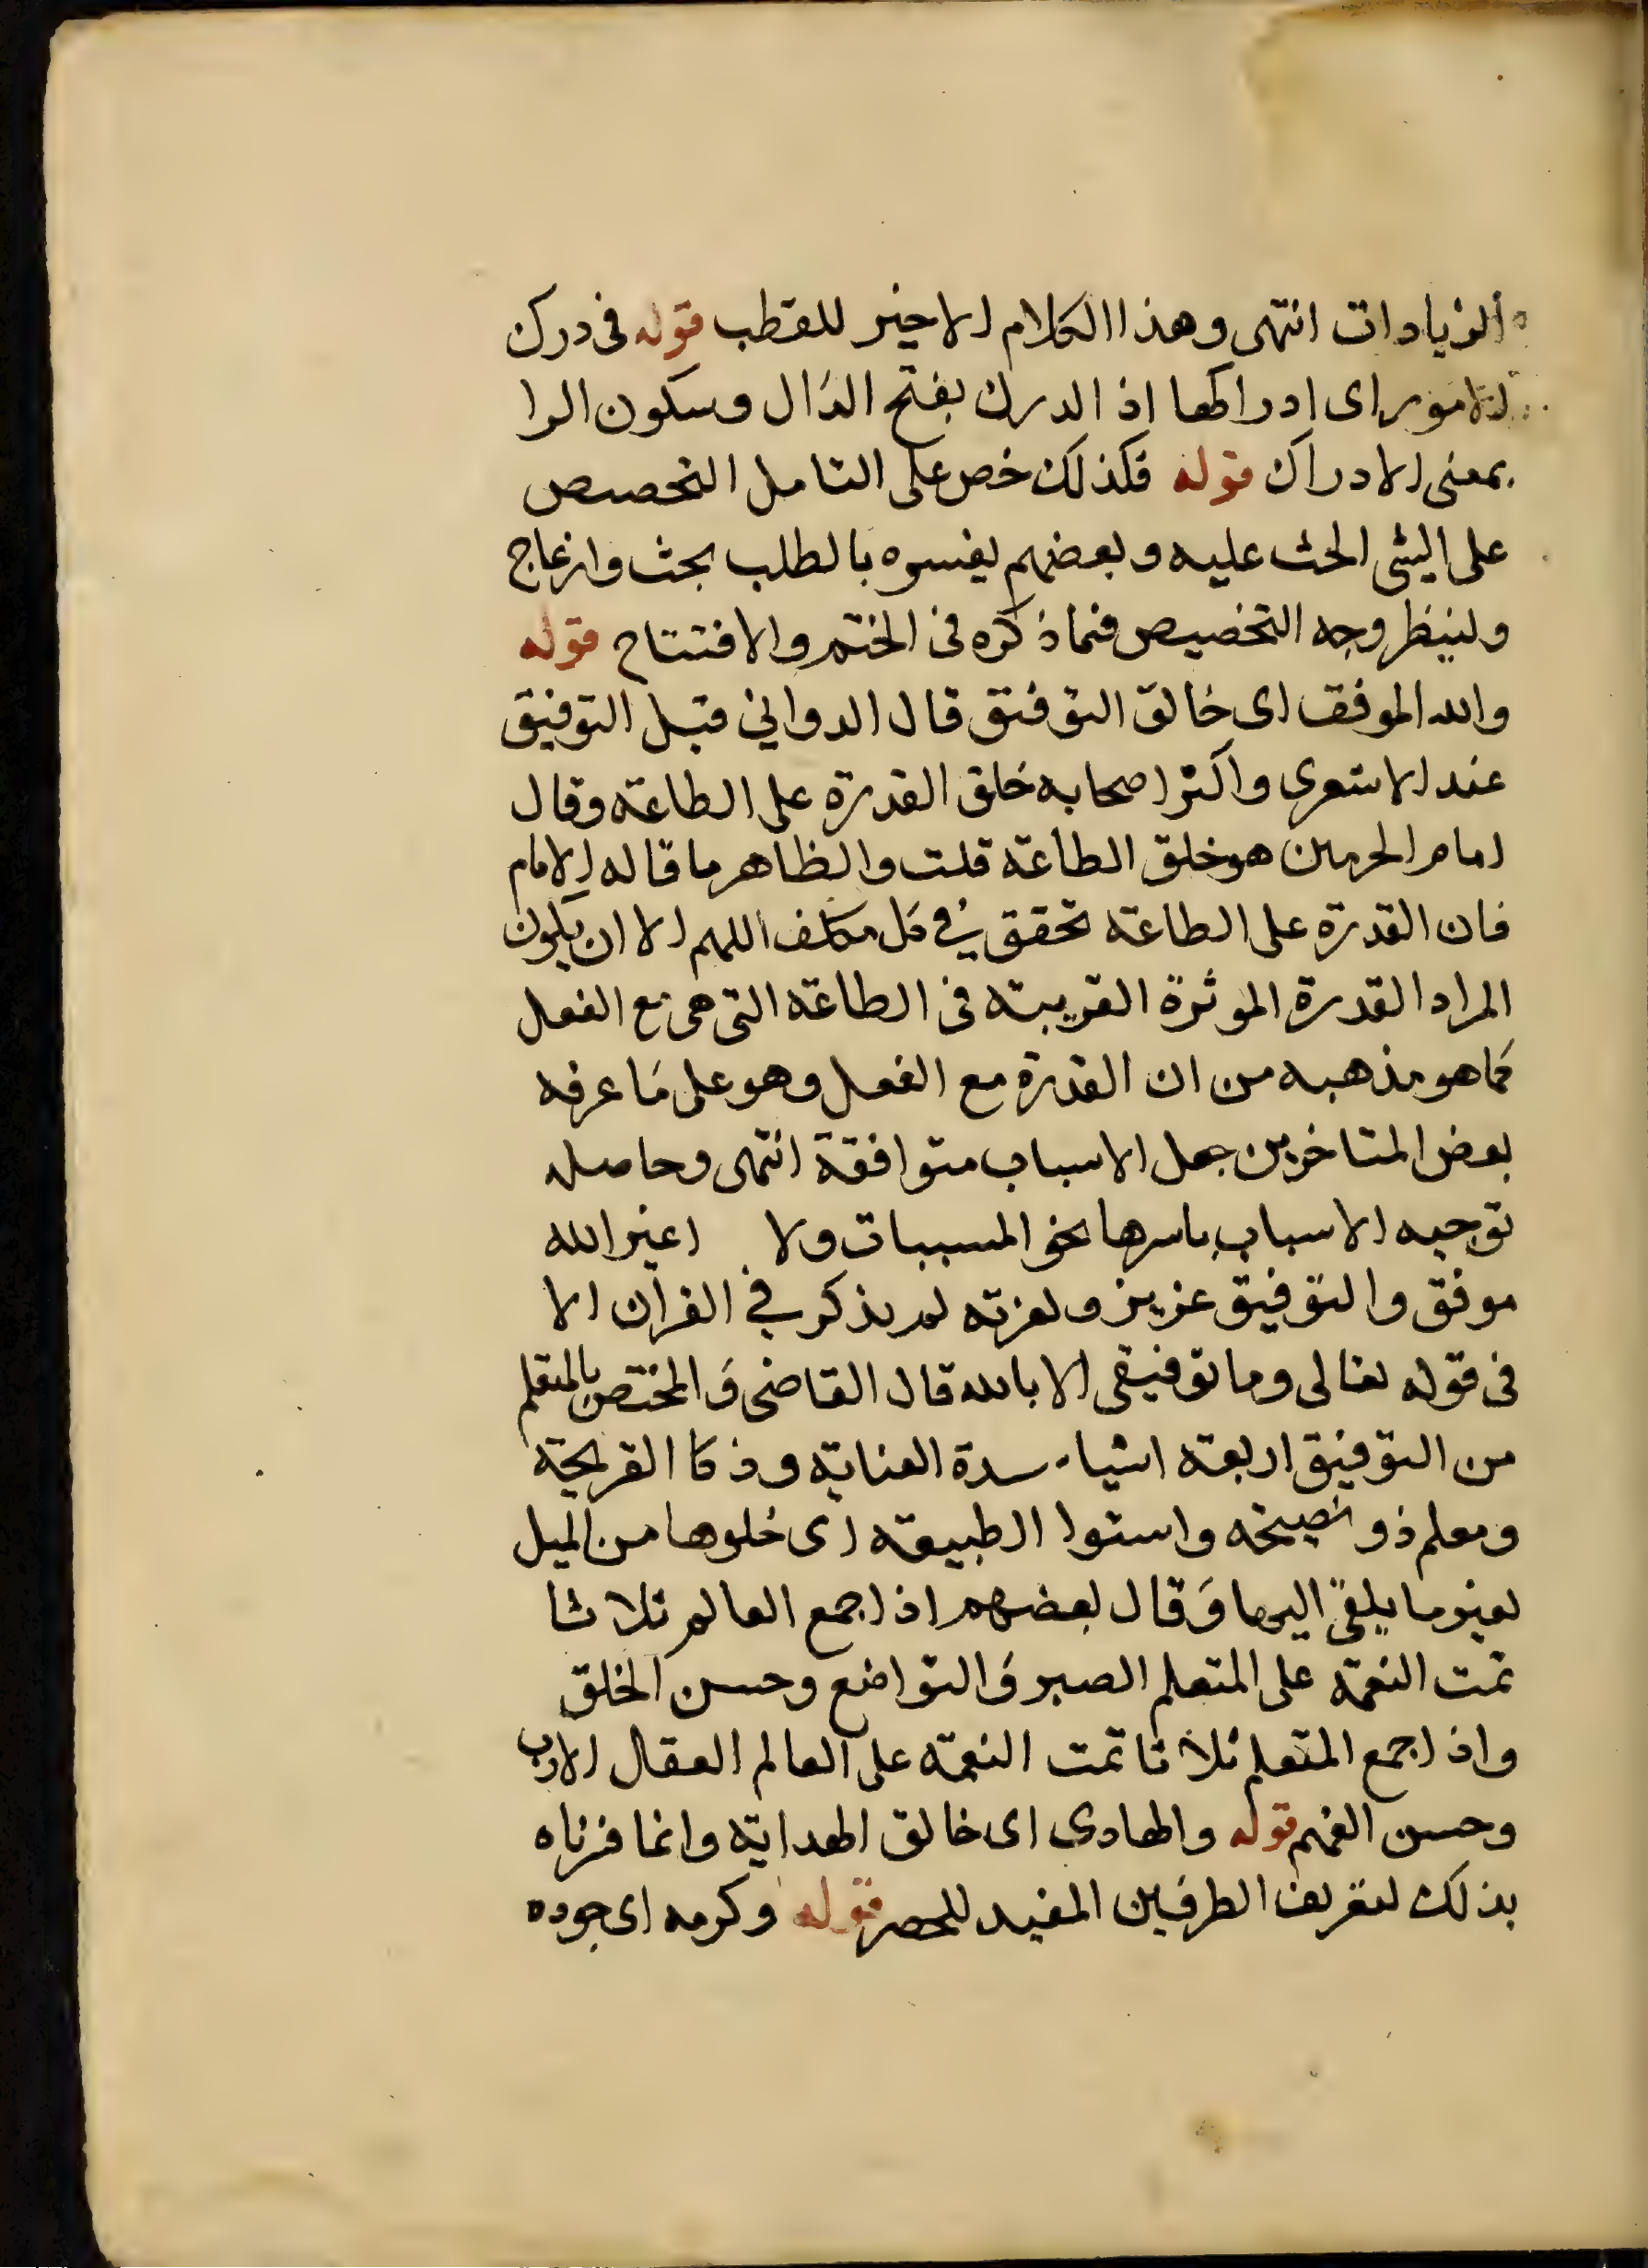 الزيادات انتهى وهذا الكلام الاخير للقطب قوله فى درك
الامور اى ادراكها اذ الدرك بفتح الدال وسكون الرا
بمعنى الادراك قوله فكذلك خص على التامل التخصيص
على الشى الحث عليه وبعضهم يفسره بالطلب بحث وازعاج
ولينظر وجه التخصيص فماذكره فى الختم والافتتاح قوله
والله الموفق اى خالق التوفيق قال الدواني قبل التوفيق
عند الاشعرى واكثر اصحابه خلق القدرة على الطاعة وقال
امام الحرمين هو خلق الطاعة قلت والظاهر ما قاله الامام
فان القدرة على الطاعة تحقق في كل مكلف اللهم الا ان يكون
المراد القدرة الموثرة القريبة فى الطاعة التى هى مع الفعل
كما هو مذهبه من ان القدرة مع الفعل وهو على ما عرفه
بعض المتاخرين جعل الاسباب متوافقة انتهى وحاصله
توجيه الاسباب باسرها نحو المسببات ولا غير الله
موفق والتوفيق عزيز ولعزته لم يذكر في القران الا
فى قوله تعالى وما توفيقى الا بالله قال القاضى والمختص بالمتعلم
من التوفيق اربعة اشيا شدة العناية وذكا القريحة
ومعلم ذو نصيحة واستوا الطبيعة اى خلوها من الميل
لغير ما يلقى اليها وقال بعضهم اذا جمع العالم ثلاثا
تمت النعمة على المتعلم الصبر والتواضع وحسن الخلق
واذا جمع المتعلم ثلاثا تمت النعمة على العالم العقال الادب
وحسن الفهم قوله والهادى اى خالق الهداية وانما قررناه
بذلك لتعريف الطرفين المفيد للحصر قوله وكرمه اى جوده